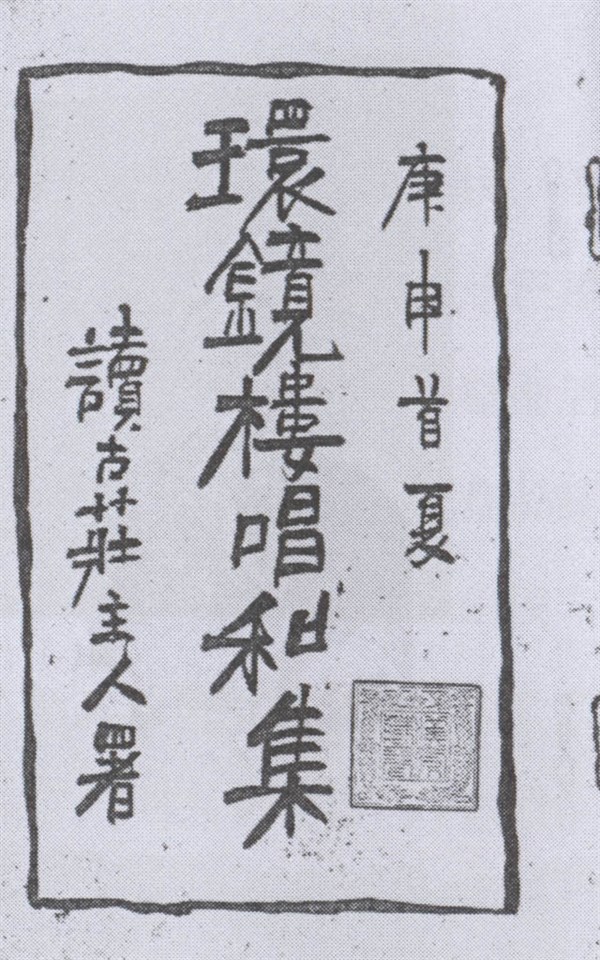 庚申首夏
環鏡樓唱和集
讀古莊主人署